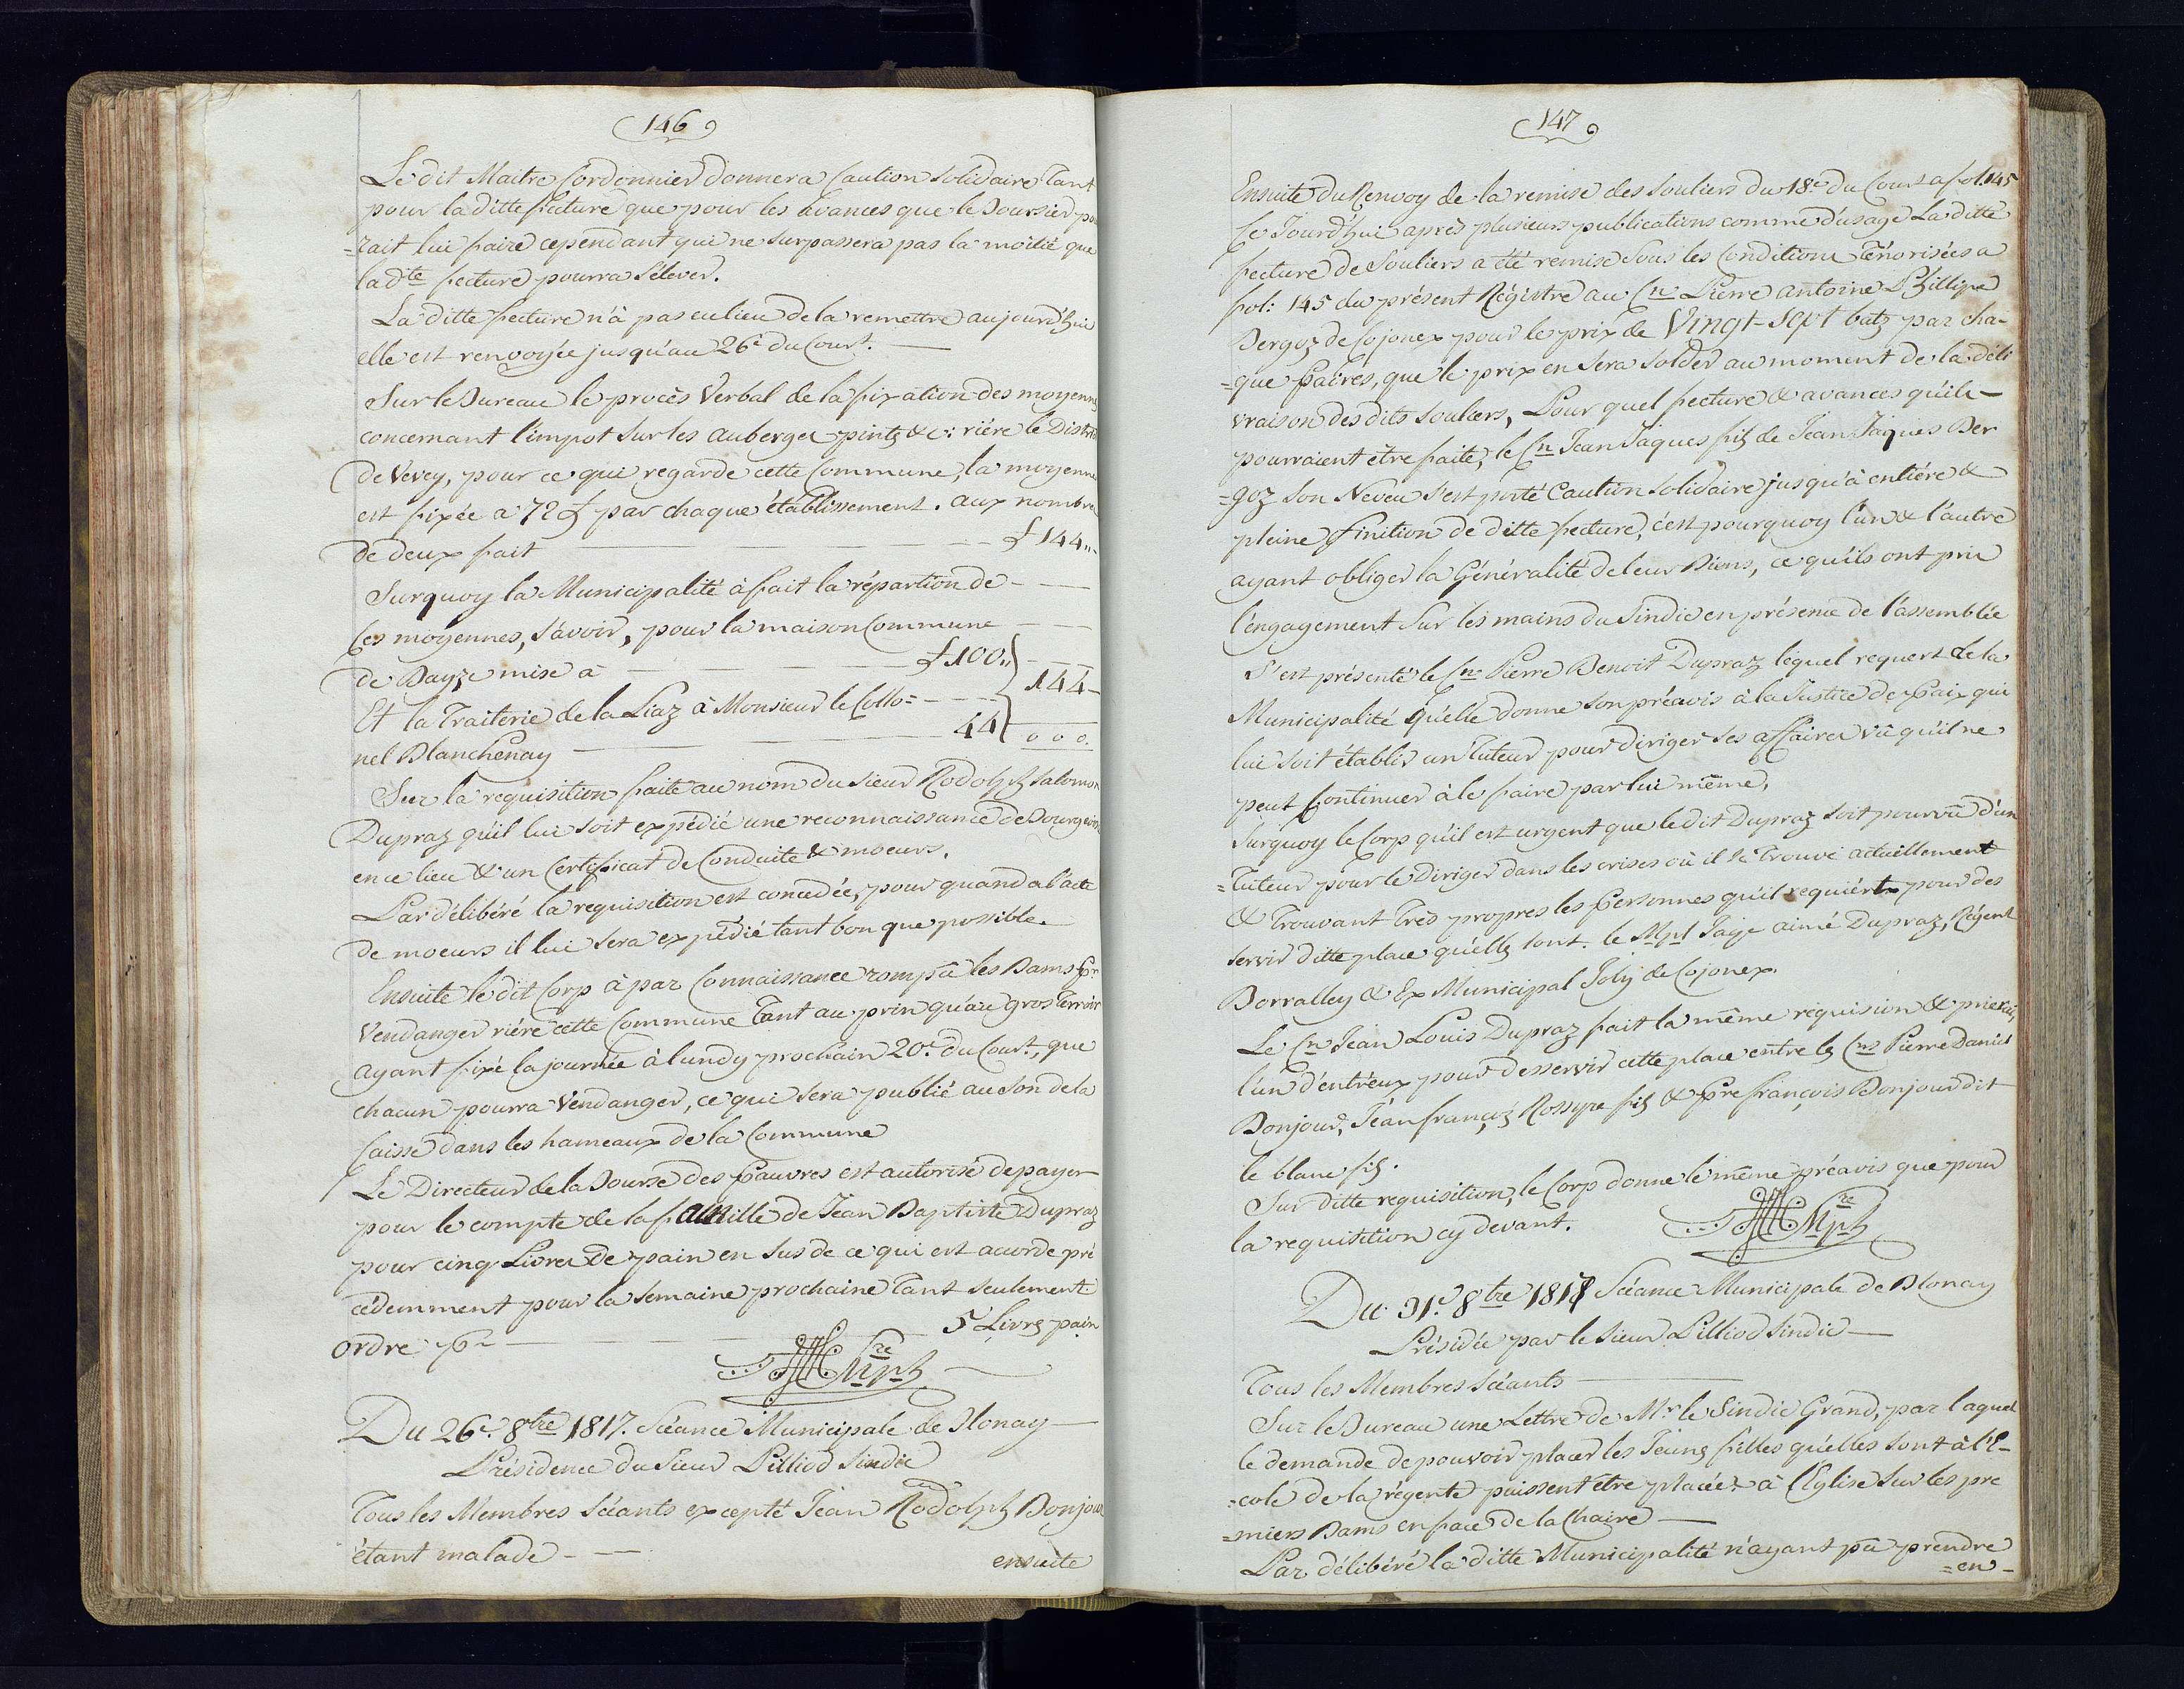 146
Le dit Maitre Cordonnier donnera Caution Solidaire tant
pour la ditte fecture que pour les Avances que le Boursier pou
=rait lui faire cependant qui ne surpassera pas la moitié que
la dte fecture pourra s'élever.
La ditte fecture n'à pas eu lieu de la remettre aujourd'hui
elle est renvoyée jusqu'au 26e du Court.
Sur le Bureau le procès Verbal de la fixation des moyennes
concernant l'impot sur les auberges pintz &c: rière le District
de Vevey, pour ce qui regarde cette Commune, la moyenne
est fixée a 72 £ par chaque établissement. aux nombre
de deux fait £ 144"-
Surquoy la Municipalité à fait la répartion de
Ces moyennes, savoir, pour la maison Commune
de Bayze mise à £ 100"
Et la Traiterie de la Liaz à Monsieur le Collo= 144-
nel Blanchenay 44 0 0 0.
Sur la requisition faite au nom du sieur Rodolph Salomon
Dupraz qu'il lui soit expédié une reconnaissance de Bourgeoisie
en ce lieu & un Certificat de Conduite & moeurs.
Par délibéré la requisition est concedée, pour quand a l'acte
de moeurs il lui sera expédié tant bon que possible.
Ensuite le dit Corp à par Connaissance rompû les Bams pr
Vendanger rière cette Commune Tant au prin qu'au gros Terroir
ayant fixé la journée à lundy prochain 20e du Court, que
chacun pourra Vendanger, ce qui sera publié au son de la
Caisse dans les hameaux de la Commune
Le Directeur de la Bourse des pauvres est autorisé de payer
pour le compte de la famille de Jean Baptiste Dupraz
pour cinq Livres de pain en sus de ce qui est acorde pré
cédemment pour la semaine prochaine Tant seulement
ordre pr 5 Livrs pain
Du 26e. 8bre 1817. Séance Municipale de Blonay
Présidence du Sieur Pilliod Sindic
Tous les Mémbres Séants excepté Jean Rodolph Bonjour
étant malade
ensuite
147
Ensuite du Renvoy de la remise des souliers du 18e du Court a fol: 145
Ce Jourd'hui après plusieurs publications comme d'usage la ditte
fecture de Souliers a été remise sous les Conditions Ténorisées a
fol: 145 du présent Régistre au Cn Pierre antoine Phillipe
Bergoz de Cojonex pour le prix de Vingt-Sept batz par cha-
=que paires, que le prix en sera solder au moment de la déli
vraison des dits souliers, Pour quel fecture & avances qu'ils-
pourraient être faite, le Cn Jean Jaques fils de Jean Jaques Ber
=goz son Neveu s'est porté Caution Solidaire jusqu'à entiére &
pleine finition de ditte fecture, c'est pourquoy l'un & l'autre
ayant obliger la Généralité de leur Biens, ce qu'ils ont pris
l'engagement Sur les mains du Sindic en présence de l'assemblée
S'est présenté le Cn Pierre Benoit Dupraz lequel requert de la
Municipalité qu'elle donne son préavis à la Justice de paix qui
lui soit établis un Tuteur pour diriger ses affaires vû qu'il ne
peut Continuer à le faire par lui même.
Surquoy le Corp qu'il est urgent que le dit Dupraz soit pourvû d'un
=Tuteur pour le Diriger dans les crises où il se trouve actuellement
& trouvant Tres propres les personnes qu'il requiért pour des
servir ditte place qu'ells sont. le Mpl Jaqe aimé Dupraz, Régent
Borralley & Ex Municipal Joly de Cojonex.
Le Cn Jean Louis Dupraz fait la même requision & prierai,
l'un d'entr'eux pour desservir cette place entre ls Cns Pierre Daniel
Bonjour, Jean franç's Rossyre fils & pre françois Bonjour dit
le blanc fils.
Sur ditte requisition, le Corp donne le même préavis que pour
la requisition cy devant.
Du 31e. 8bre 1817 Séance Municipale de Blonay
Présidée par le sieur Pilliod Sindic
Tous les Membres Séants
Sur le Bureau une Lettre de Mr le Sindic Grand, par laquel
le demande de pouvoir placer les Jeuns filles qu'elles sont à l'E-
=cole de la régente puissent être placées à l'Eglise sur les pre
=miers Bams en face de la Chaire
Par délibéré la ditte Municipalité n'ayant pû prendre
=en-